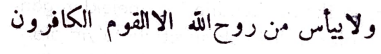 ولاييأس من روح الله الاالقوم الكافرون